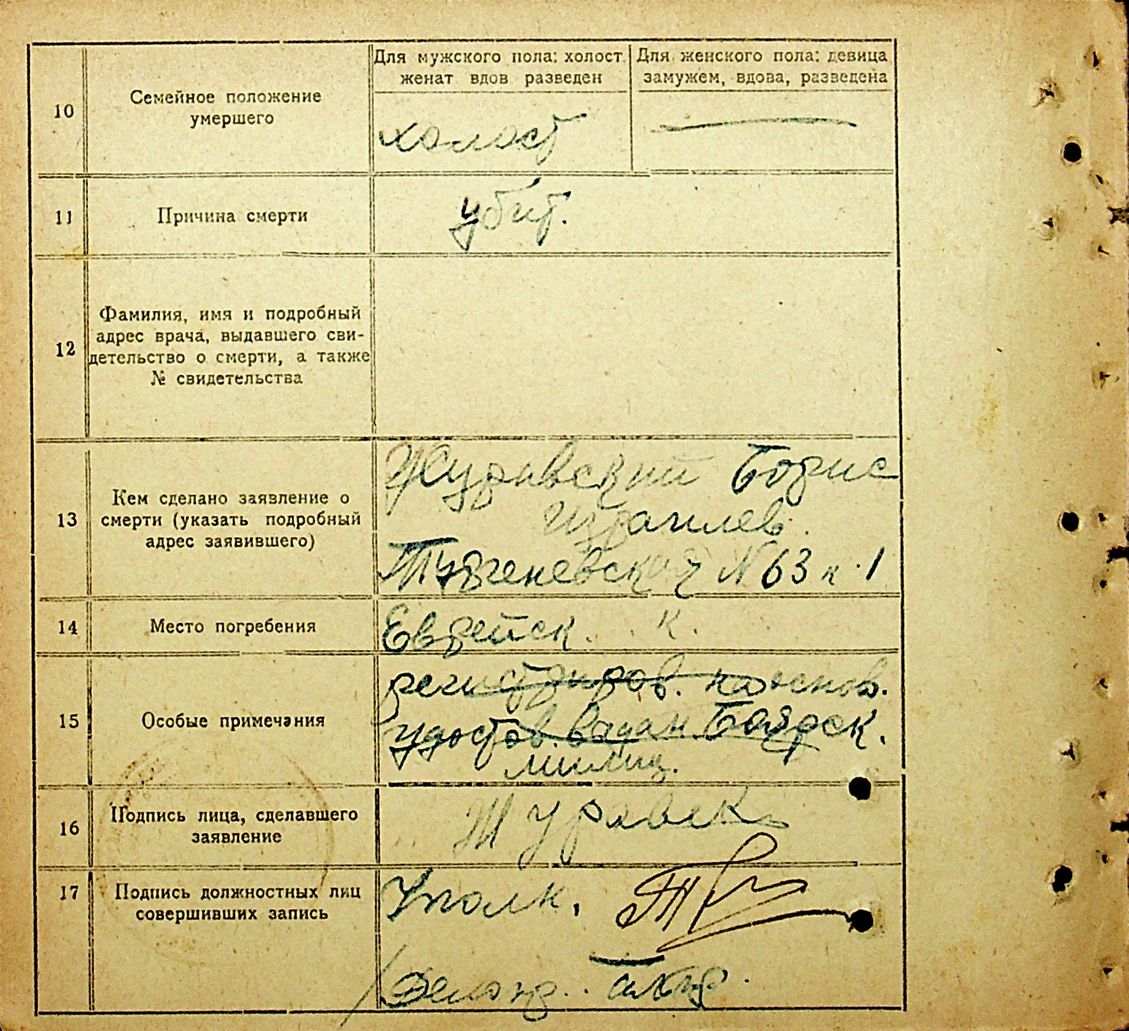 10
Семейное положение
умершего
Для мужского пола: холост
женат вдов разведен
Для женского пола: девица
замужем, вдова, разведена
холост
11
Причина смерти
убит.
12
Фамилия, имя и подробный
адрес врача, выдавшего сви-
детельство о смерти, а также
№ свидетельства
13
Кем сделано заявление о
смерти (указать подробный
адрес заявившего)
Журавский Борис
Израилев.
Тургеневская N 63 к. 1
14
Место погребения
Еврейск. к.
15
Особые примечания
регистриров. на основ.
удостов. выдан. Боярск.
милиц.
16
Подпись лица, сделавшего
заявление
Журавск
17
Подпись должностных лиц
совершивших запись
Уполн.